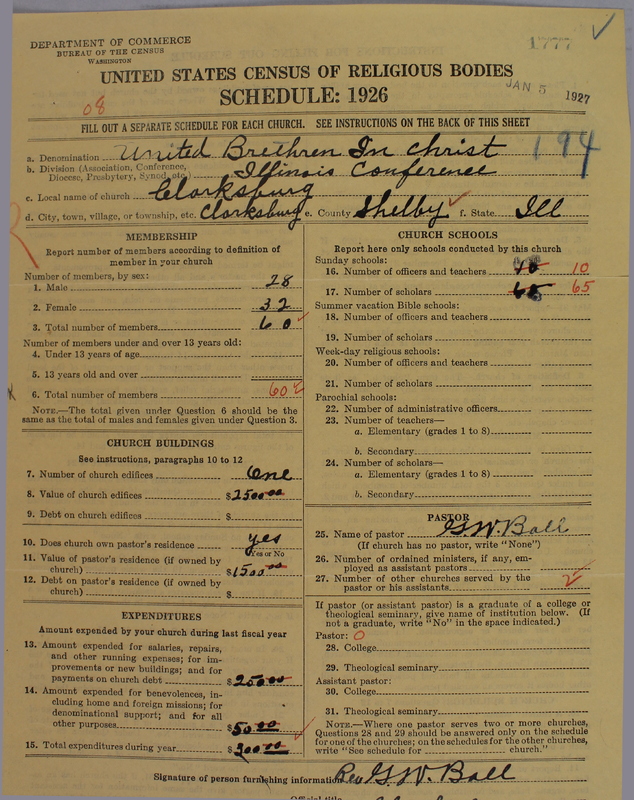 DEPARTMENT OF COMMERCE
BUREAU OF THE CENSUS
WASHINGTON
1777
UNITED STATES CENSUS OF RELIGIOUS BODIES
SCHEDULE: 1926
JAN 5 1927
08
FILL OUT A SEPARATE SCHEDULE FOR EACH CHURCH. SEE INSTRUCTIONS ON THE BACK OF THIS SHEET
194
a. Denomination United Brethren In Christ
b. Division (Association, Conference, Diocese, Presbytery, Synod, etc.) Illinois Conference
c. Local name of church Clarksburg
d. City, town, village, or township, etc. Clarksburg e. County Shelby f. State Ill
MEMBERSHIP
Report number of members according to definition of
member in your church
Number of members, by sex:
1. Male 28
2. Female 32
3. Total number of members 60
Number of members under and over 13 years old:
4. Under 13 years of age
5. 13 years old and over
6. Total number of members 60
NOTE.—The total given under Question 6 should be
same as the total of males and females given under Question 3.
CHURCH BUILDINGS
See instructions, paragraphs 10 to 12
7. Number of church edifices One
8. Value of church edifices $2500.00
9. Debt on church edifices $
10. Does church own pastor's residence yes
Yes or No
11. Value of pastor's residence (if owned by
church) $1500.00
12. Debt on pastor's residence (if owned by
church) $
EXPENDITURES
Amount expended by your church during last fiscal year
13. Amount expended for salaries, repairs,
and other running expenses; for im-
provements or new buildings; and for
payments on church debt $250.00
14. Amount expended for benevolences, in-
cluding home and foreign missions; for
denominational support; and for all
other purposes $50.00
15. Total expenditures during year $300.00
CHURCH SCHOOLS
Report here only schools conducted by this church
Sunday schools:
16. Number of officers and teachers 10 10
17. Number of scholars 65 65
Summer vacation Bible schools:
18. Number of officers and teachers
19. Number of scholars
Week-day religious schools:
20. Number of officers and teachers
21. Number of scholars
Parochial schools:
22. Number of administrative officers
23. Number of teachers—
a. Elementary (grades 1 to 8)
b. Secondary
24. Number of scholars—
a. Elementary (grades 1 to 8)
b. Secondary
PASTOR
25. Name of pastor G.W. Ball
(If church has no pastor, write "None")
26. Number of ordained ministers, if any, em-
ployed as assistant pastors
27. Number of other churches served by the
pastor or his assistants 2
If pastor (or assistant pastor) is a graduate of a college or
theological seminary, give name of institution below. (If
not a graduate, write "No" in the space indicated.)
Pastor: 0
28. College
29. Theological seminary
Assistant pastor:
30. College
31. Theological seminary
NOTE.—Where one pastor serves two or more churches,
Questions 28 and 29 should be answered only on the schedule
for one of the churches; on the schedules for the other churches,
write "See schedule for church."
Signature of person furnishing information Rev G.W. Ball
Official title